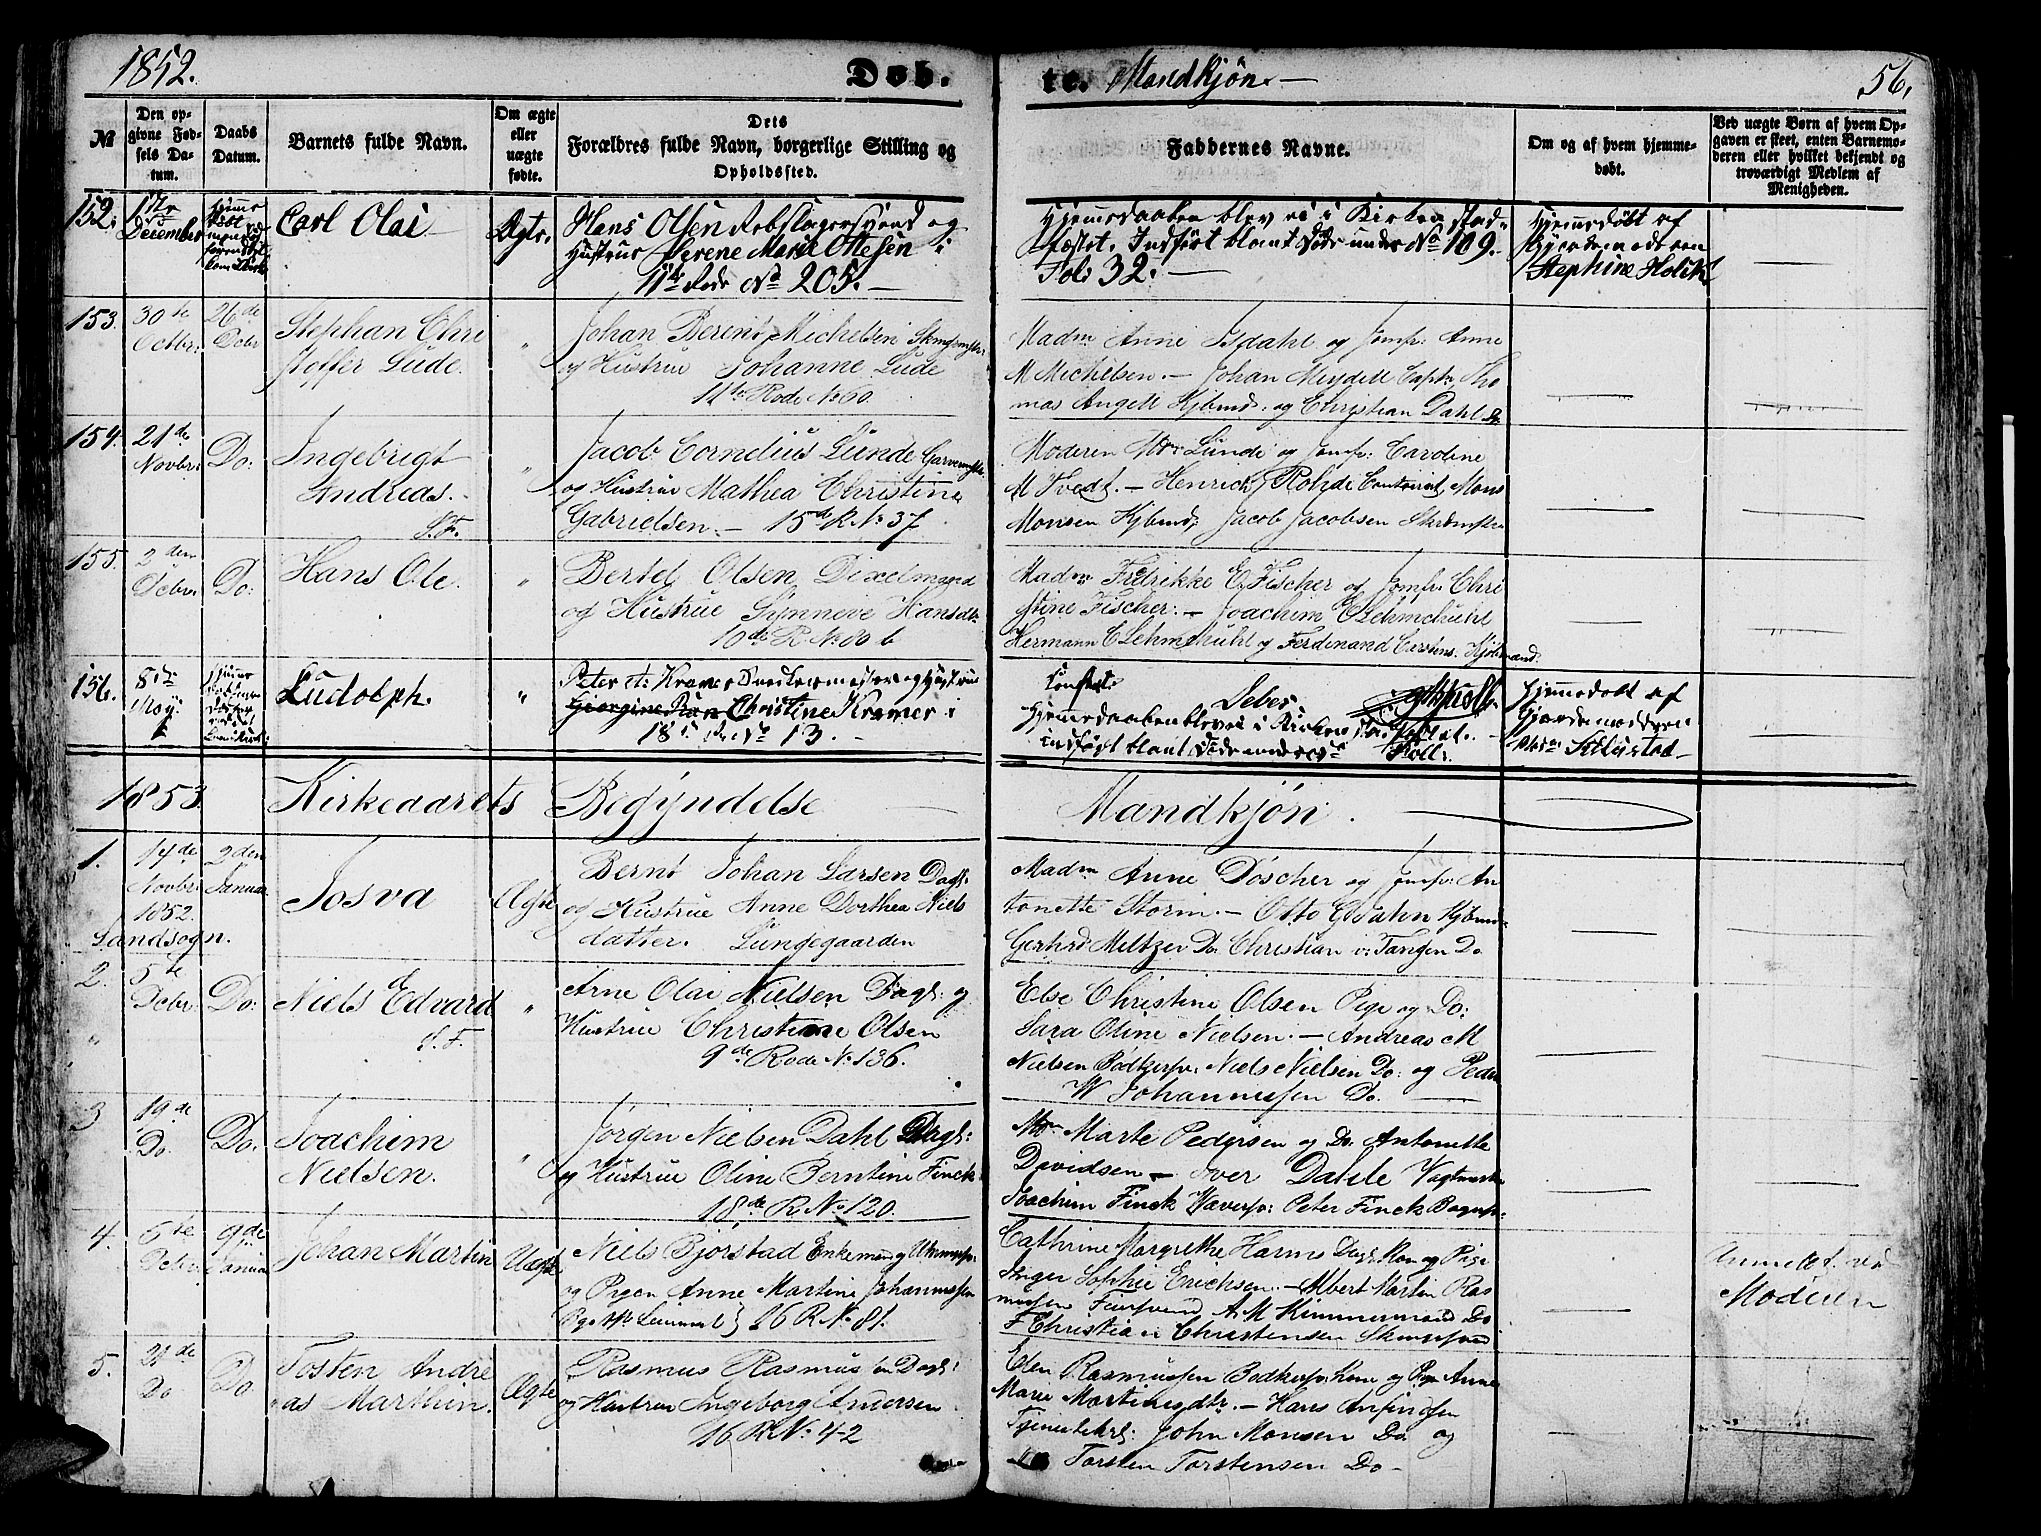 1852.
Døb.
te. Mandkjøn. —
56.
№
Den op-
givne Fød-
sels Da-
tum.
Daabs
Datum.
Barnets fulde Navn.
Om ægte
eller
uægte
fødte.
Dets
Forældres fulde Navn, borgerlige Stilling og
Opholdssted.
Faddernes Navne.
Om og af hvem hjemme-
døbt.
Ved uægte Børn af hvem Op-
gaven er skeet, enten Barnemo-
deren eller hvilket bekjendt og
troværdigt Medlem af
Menigheden.
152. December Carl Olai Ægte.
Hans Olsen Rebslagersvend og
Hustrue Serene Marie Olsen i
11te Rode No 205. —
Hjemmedaaben blev ei i Kirken stad-
fæstet. Indført blant Døde under No 109.
Fol: 32. —
Hjemmedøbt af
Stephine Holck
153. 30te Octbr: 26de Dcbr Stephan Chri
stoffer Lude. "
Johan Berent Michelsen
og Hustrue Johanne Lude
11te Rode No 60.
Madm Anne Isdahl og Jomfr: Anne
M Michelsen. — Johan Meydell Capt: Tho
mas Angell Kjbmd: og Christian Dahl
154. 21de Novbr: Do: Ingebrigt
Andreas. —
S. F. "
Jacob Cornelius Lunde Garvermstr:
og Hustrue Mathea Christine
Gabrielsen. — 15de R No 37.
Moderen Mdm Lunde og Jomfr: Caroline
M Tvedt. — Henrich Rohde Contorist, Mons
Monsen Kjbmd; Jacob Jacobsen
155. 2den Dcbr: Do: Hans Ole. "
Bertel Olsen
og Hustrue Synneve Hansdtr:
10de R. No: 80 b
Madm Fredrikke E. Fischer og Jomfr: Chri
stine Fischer: — Joachim Lehmchuhl
Hermann C Lehmchuhl og Ferdinand
156. 8de Ludolph. "
Peter Kramer Snedkermester og Hustrue
Christine Kramer i
18de R. No 13. —
Hjemmedaaben blev ei i Kirken
indført blant Døde under
Hjemmedøbt af
Gjordemoderen
1853. Kirkeaarets Begyndelse — Mandkjøn.
1. 14de Novbr: 1852. 2den Januar Josva Ægte
Landsogn.
Bernt Johan Larsen Dagk:
og Hustrue Anne Dorthea Niels
datter. Lungegaarden
Madm Anne Döscher og Jomfr: An
tonette Storm. — Otto G Dahn Kjbmd:
Gerhard Meltzer Do. Christian v: Tangen Do
2. 5te Dcbr: Do: Niels Edvard "
S. F.
Arne Olai Nielsen Dagk: og
Hustrue Christine Olsen
9de Rode No: 136.
Else Christine Olsen Pige og Do:
Sara Oline Nielsen. — Andreas M
Nielsen Bødkersv: Niels Nielsen Do: og Peder
W Johannessen Do. —
3 19de Do. Do. Joachim
Nielsen. "
Jørgen Nielsen Dahl Dagk:
og Hustrue Oline Berntine Finck
18de R No 120.
Mdm Marte Pedersen og Do. Antonette
Davidsen —
Joachim Finck Peter Finck
4. 6te Dcbr: 9de Januar Johan Martin Uægte
Niels Bjørstad Enkemand og
og Pigen Anne Martine Johannessen
16 R No. 81.
Cathrine Margrethe Harms og Pige
Inger Sophie Erichsen. — Albert Martin Ras
mussen A M Kimmermand Do
F Christian Christensen
Anmeldt ved
Moderen
5. 21de Do Do Tosten Andre
as Marthin. Ægte
Rasmus Rasmussen Dagk:
og Hustrue Ingeborg Andersen
16 R No: 42
Elen Rasmussen Bødkersv: Kone og Pige Anne
Marie Martinusdtr. — Hans Anfindsen
Tjenestekarl: John Monsen Do. og
Torsten Torstensen Do —